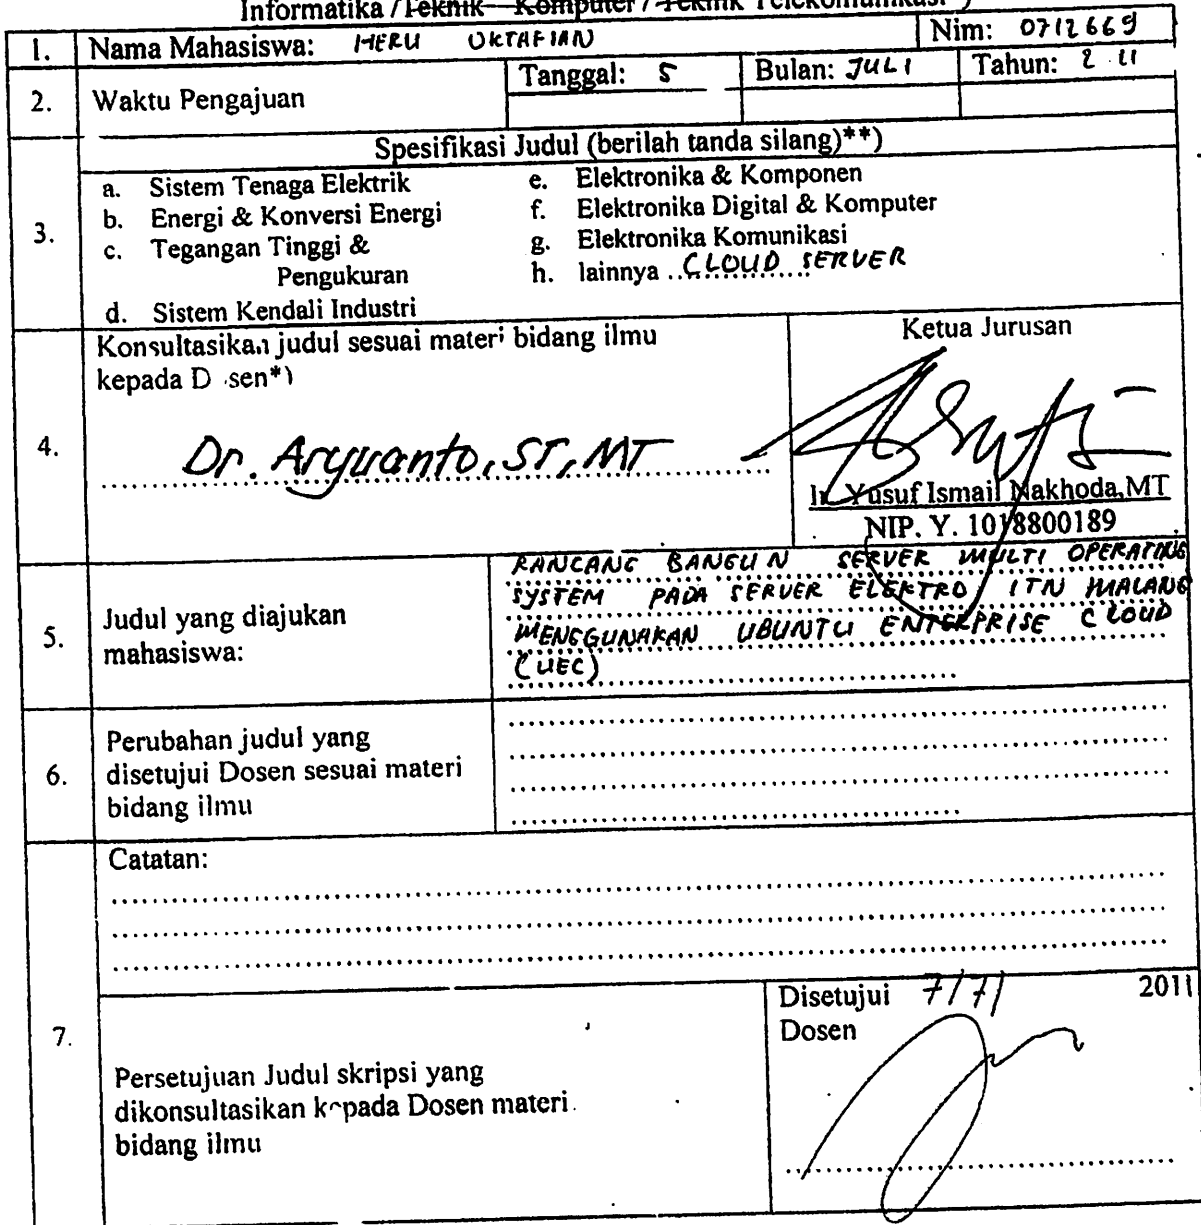 Informatika / Teknik Komputer / Teknik Telekomunikasi *)
1. Nama Mahasiswa: HERU OKTAFIAN Nim: 0712669
2. Waktu Pengajuan Tanggal: 5 Bulan: JULI Tahun: 2 11
3. Spesifikasi Judul (berilah tanda silang)**)
a. Sistem Tenaga Elektrik
b. Energi & Konversi Energi
c. Tegangan Tinggi &
Pengukuran
d. Sistem Kendali Industri
e. Elektronika & Komponen
f. Elektronika Digital & Komputer
g. Elektronika Komunikasi
h. lainnya ..CLOUD SERVER
4. Konsultasikan judul sesuai materi bidang ilmu
kepada D sen*)
Dr. Aryuanto, ST, MT
Ketua Jurusan
Ir. Yusuf Ismail Nakhoda, MT
NIP. Y. 1018800189
5. Judul yang diajukan
mahasiswa:
RANCANG BANGUN SERVER MULTI OPERATING
SYSTEM PADA SERVER ELEKTRO ITN MALANG
MENGGUNAKAN UBUNTU ENTERPRISE CLOUD
(UEC)
6. Perubahan judul yang
disetujui Dosen sesuai materi
bidang ilmu
7. Catatan:
Persetujuan Judul skripsi yang
dikonsultasikan kepada Dosen materi
bidang ilmu
Disetujui 7/7/ 2011
Dosen